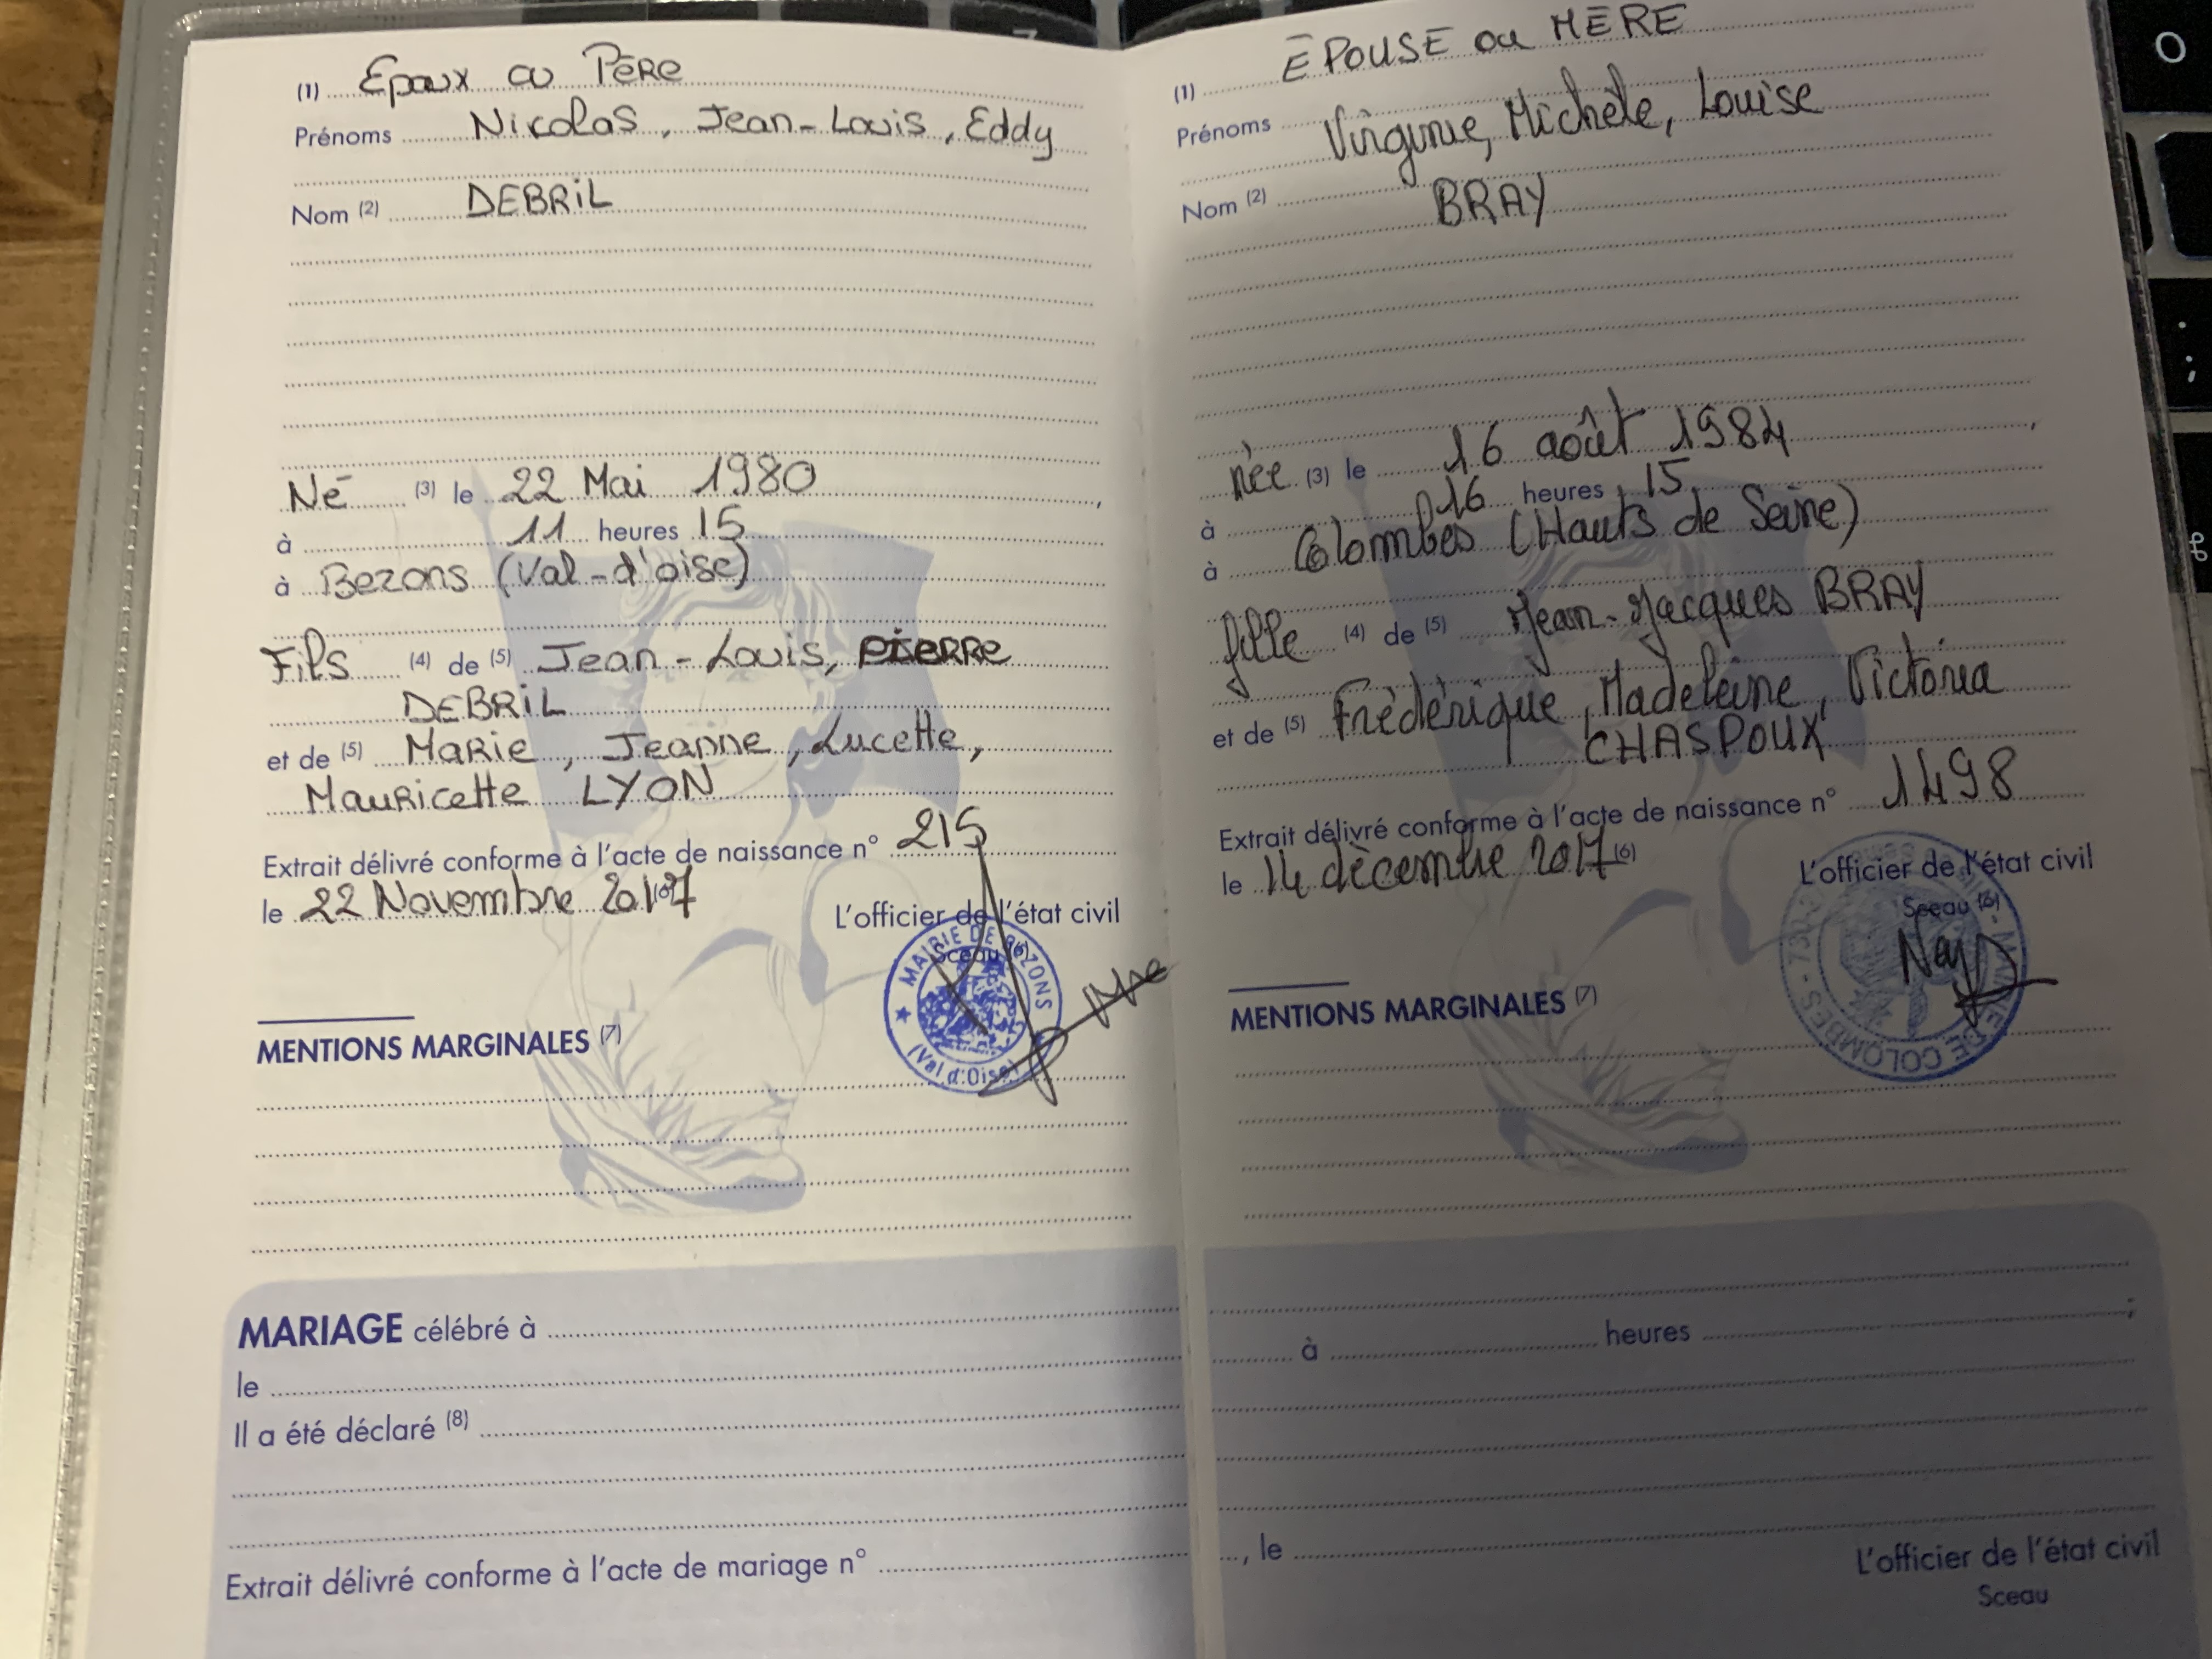 (1) Epoux ou Père
Prénoms Nicolas, Jean-Louis, Eddy
Nom (2) DEBRIL
Né (3) le 22 Mai 1980
à 11 heures 15
à Bezons (Val-d'oise)
Fils (4) de (5) Jean-Louis, PIERRE
DEBRIL
et de (5) Marie, Jeanne, Lucette,
Mauricette LYON
Extrait délivré conforme à l'acte de naissance n° 215
le 22 Novembre 2017 (6)
L'officier de l'état civil
Sceau (6)
MAIRIE DE BEZONS
(Val d'Oise)
MENTIONS MARGINALES (7)
(1) ÉPOUSE ou MÈRE
Prénoms Virginie, Michèle, Louise
Nom (2) BRAY
née (3) le 16 août 1984,
à 16 heures 15
à Colombes (Hauts de Seine)
fille (4) de (5) Jean-Jacques BRAY
et de (5) Frédérique, Madeleine, Victoria
CHASPOUX
Extrait délivré conforme à l'acte de naissance n° 1498
le 14 décembre 2017 (6)
L'officier de l'état civil
Sceau (6)
MAIRIE DE COLOMBES
MENTIONS MARGINALES (7)
MARIAGE célébré à
le à heures ;
Il a été déclaré (8)
Extrait délivré conforme à l'acte de mariage n° , le
L'officier de l'état civil
Sceau
O
:
;
⌘